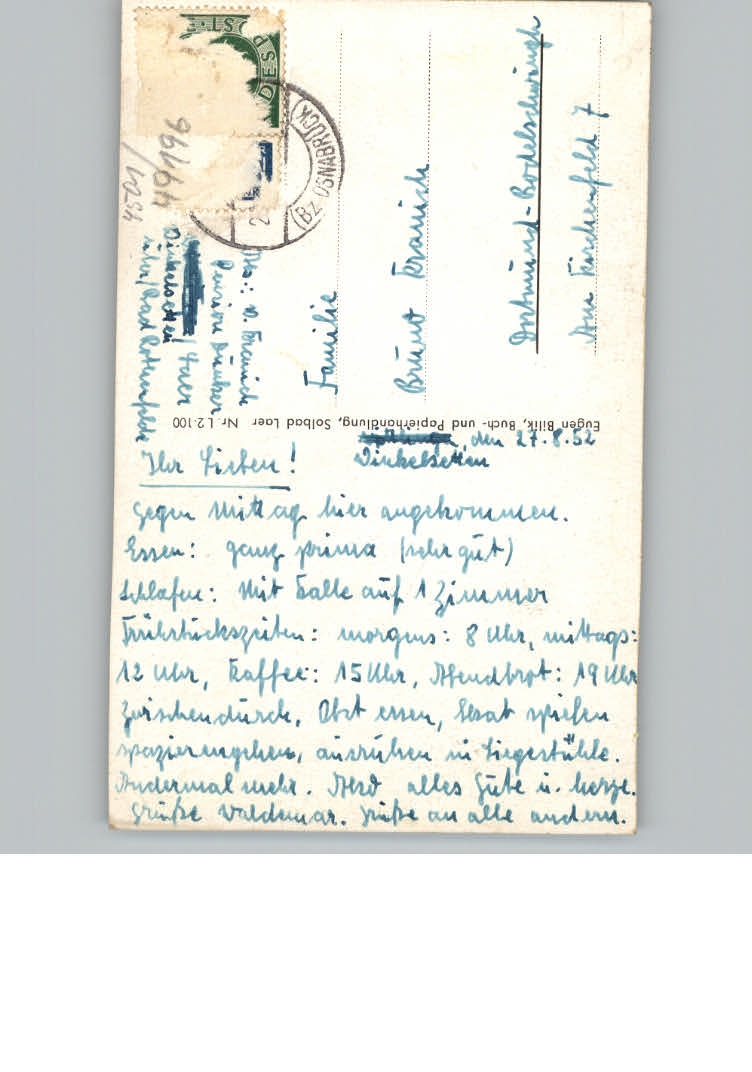 49196
/
4504
DESP ST.
(BZ. OSNABRÜCK)
2
Abs.: V. Kranich
Pension Dünker
/Laer
Winkelsetten
über/Bad Rothenfelde
Familie
Bruno Kranich
Dortmund-Bodelschwingh
Am Kirchenfeld 7
Eugen Bilik, Buch- und Papierhandlung, Solbad Laer Nr. L 2-100
, den 27.8.52
Winkelsetten
Ihr Lieben!
Gegen Mittag hier angekommen.
Essen: ganz prima (sehr gut)
Schlafen: Mit Kalle auf 1 Zimmer
Frühstückszeiten: morgens: 8 Uhr, mittags:
12 Uhr, Kaffee: 15 Uhr, Abendbrot: 19 Uhr
Zwischendurch, Obst essen, Skat spielen
spazierengehen, ausruhen in Liegestühle.
Andermal mehr. Also alles Gute u. herzl.
Grüße Waldemar. Grüße an alle andern.